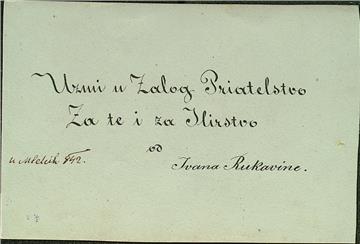 Uzmi u Zalog Priatelstvo
Za te i za Ilirstvo
od
u Mletcih 842.
Ivana Rukavine.